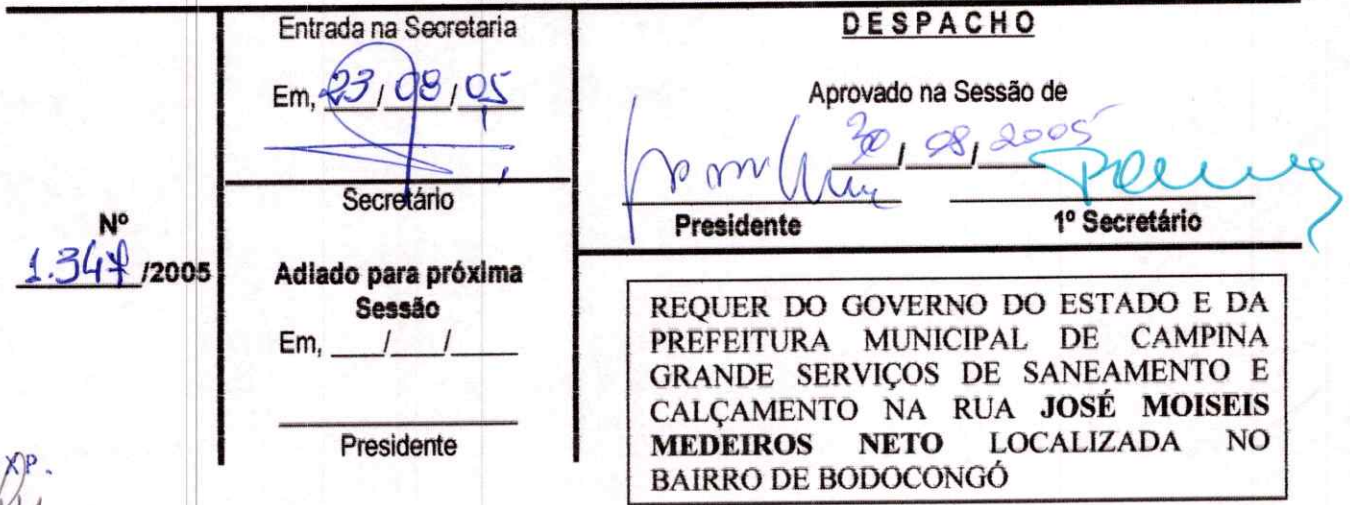 Nº
1.347 /2005
Entrada na Secretaria
Em, 23/08/05
Secretário
Adiado para próxima
Sessão
Em, ___/___/_____
Presidente
DESPACHO
Aprovado na Sessão de
30/08/2005
Presidente
1º Secretário
REQUER DO GOVERNO DO ESTADO E DA
PREFEITURA MUNICIPAL DE CAMPINA
GRANDE SERVIÇOS DE SANEAMENTO E
CALÇAMENTO NA RUA JOSÉ MOISEIS
MEDEIROS NETO LOCALIZADA NO
BAIRRO DE BODOCONGÓ